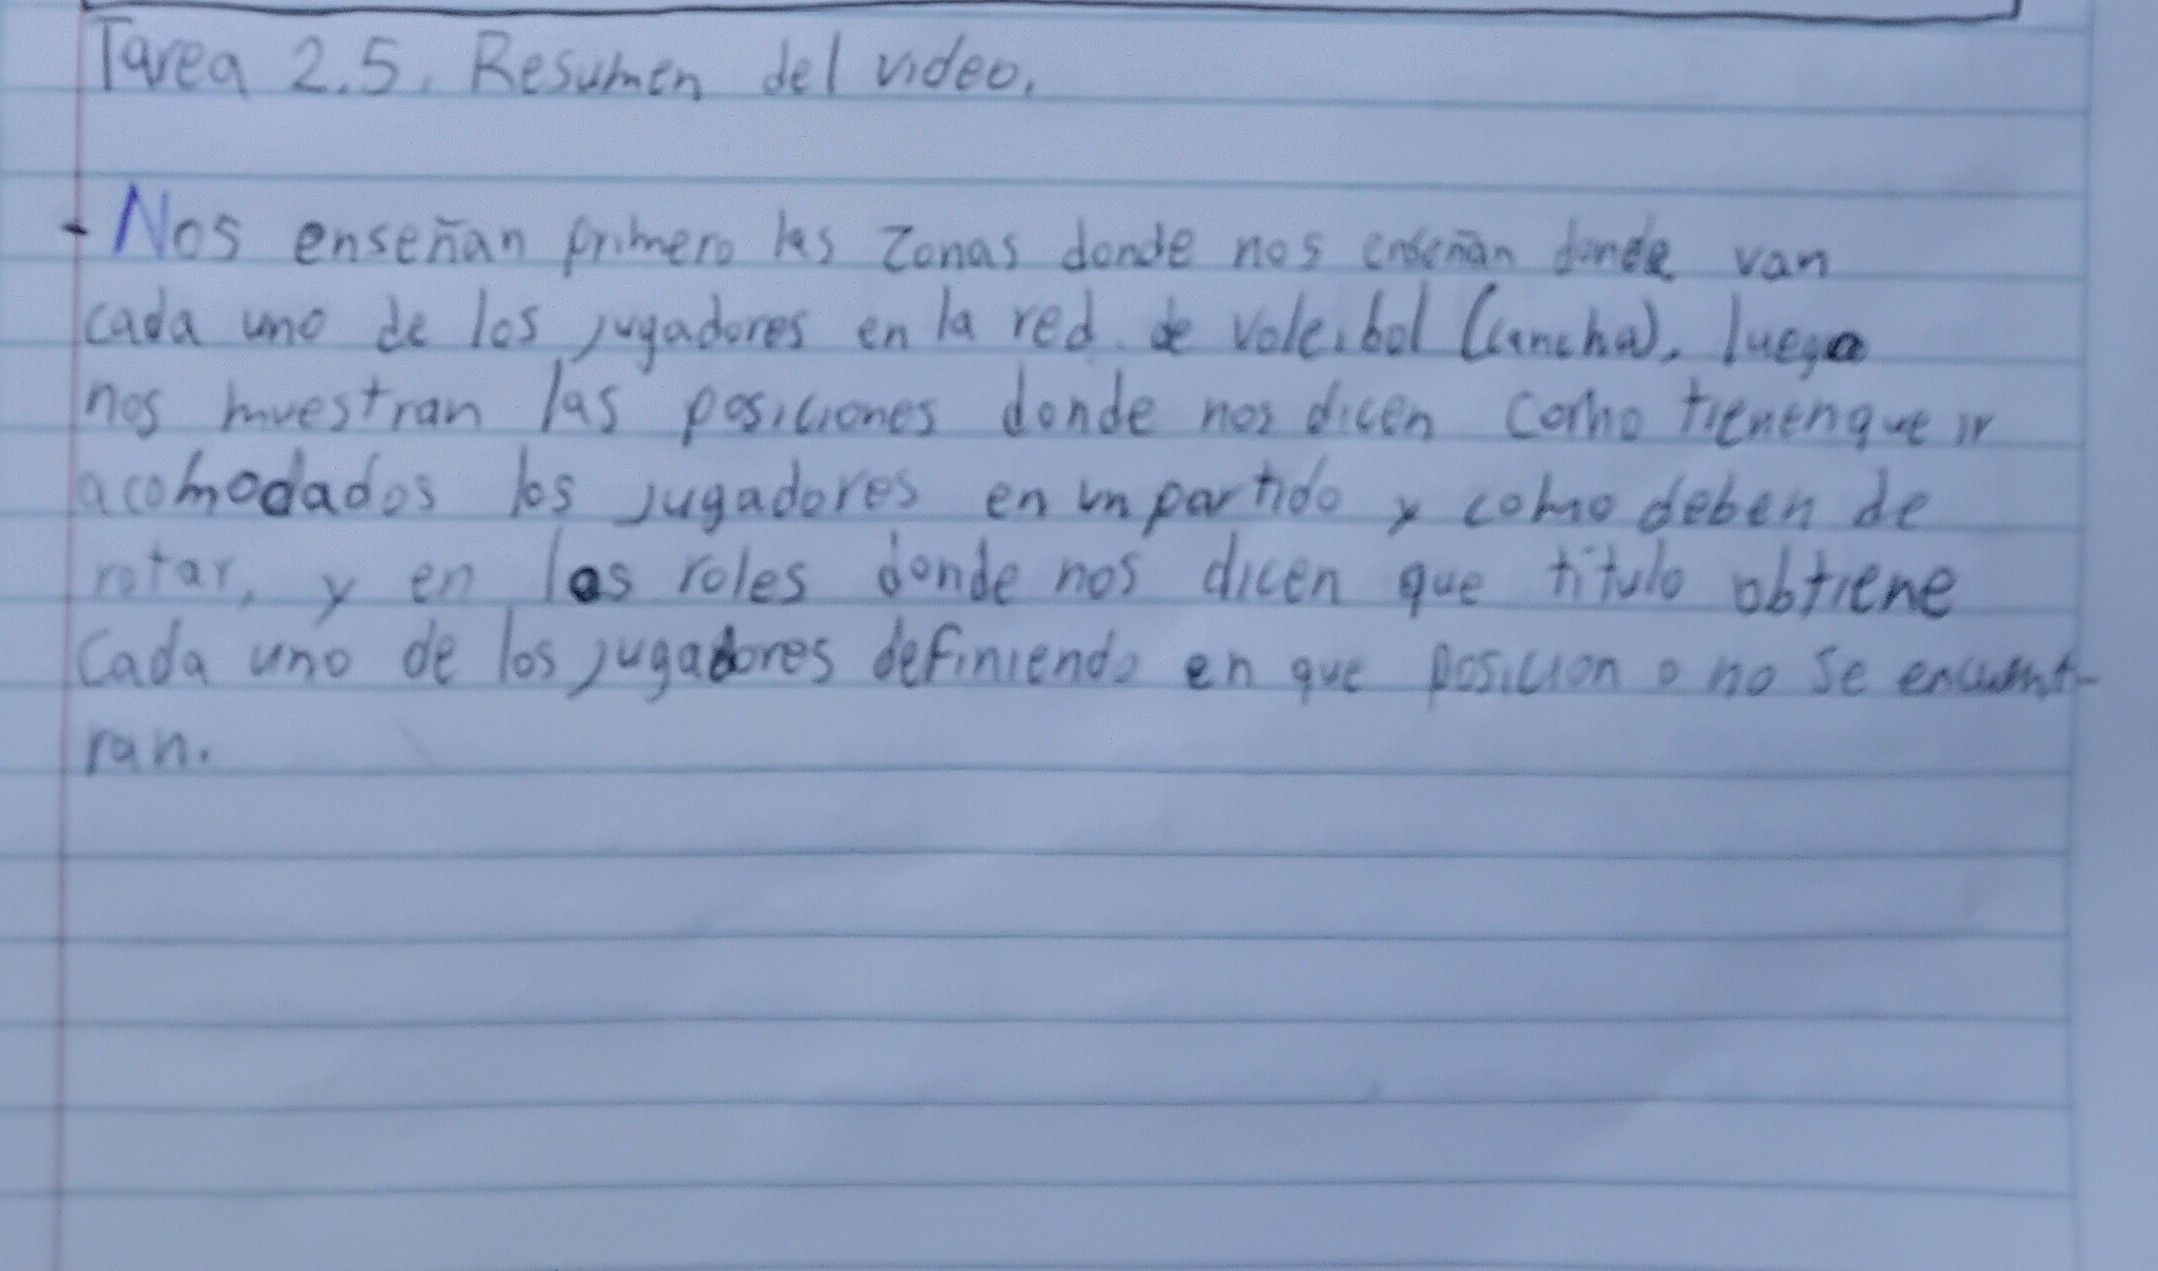 Tarea 2.5. Resumen del video.
- Nos enseñan primero las zonas donde nos enseñan donde van
cada uno de los jugadores en la red de voleibol (cancha), luego
nos muestran las posiciones donde nos dicen como tienen que ir
acomodados los jugadores en un partido y como deben de
rotar, y en los roles donde nos dicen que titulo obtiene
Cada uno de los jugadores definiendo en que posicion o no se encuent-
ran.